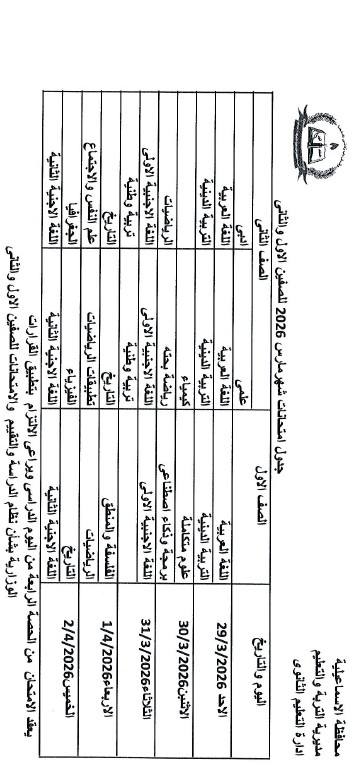 محافظة الاسماعيلية
مديرية التربية والتعليم
ادارة التعليم الثانوى
جدول امتحانات شهر مارس 2026 للصفين الاول والثانى
اليوم والتاريخ الصف الاول الصف الثانى
علمى ادبى
الاحد 29/3/2026 اللغة العربية اللغة العربية اللغة العربية
التربية الدينية التربية الدينية التربية الدينية
الاثنين30/3/2026 علوم متكاملة كيمياء
برمجة وذكاء اصطناعى رياضة بحته الرياضيات
الثلاثاء31/3/2026 اللغة الاجنبية الاولى اللغة الاجنبية الاولى اللغة الاجنبية الاولى
تربية وطنية تربية وطنية
الاربعاء1/4/2026 الفلسفة والمنطق التاريخ التاريخ
الرياضيات تطبيقات الرياضيات علم النفس والاجتماع
الخميس2/4/2026 التاريخ الفيزياء الجغرافيا
اللغة الاجنبية الثانية اللغة الاجنبية الثانية اللغة الاجنبية الثانية
يعقد الامتحان من الحصة الرابعة من اليوم الدراسى ويراعى الالتزام بتطبيق القرارات
الوزارية بشأن نظام الدراسة والتقييم والامتحانات للصفين الاول والثانى